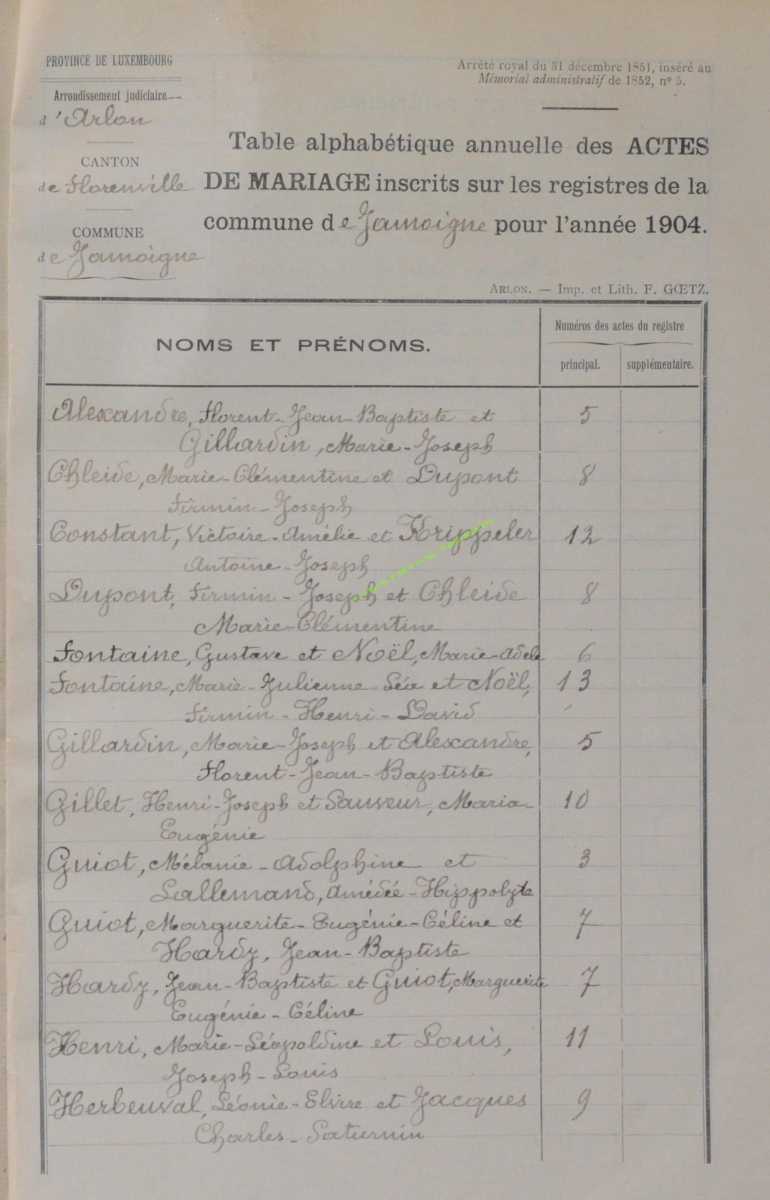 PROVINCE DE LUXEMBOURG
Arrondissement judiciaire
d'Arlon
CANTON
de Florenville
COMMUNE
de Jamoigne
Arrêté royal du 31 décembre 1851, inséré au
Mémorial administratif de 1852, n° 5.
Table alphabétique annuelle des ACTES
DE MARIAGE inscrits sur les registres de la
commune de Jamoigne pour l'année 1904.
ARLON. — Imp. et Lith. F. GŒTZ.
NOMS ET PRÉNOMS.
Numéros des actes du registre
principal. supplémentaire.
Alexandre, Florent-Jean-Baptiste et 5
Gillardin, Marie-Joseph
Chleide, Marie-Clémentine et Dupont 8
Firmin-Joseph
Constant, Victoire-Amélie et Krippeler 12
Antoine-Joseph
Dupont, Firmin-Joseph et Chleide 8
Marie-Clémentine
Fontaine, Gustave et Noël, Marie-Adèle 6
Fontaine, Marie-Julienne-Léa et Noël, 13
Firmin-Henri-David
Gillardin, Marie-Joseph et Alexandre, 5
Florent-Jean-Baptiste
Gillet, Henri-Joseph et Sauveur, Maria- 10
Eugénie
Guiot, Mélanie-Adolphine et 3
Lallemand, Amédée-Hippolyte
Guiot, Marguerite-Eugénie-Céline et 7
Hardy, Jean-Baptiste
Hardy, Jean-Baptiste et Guiot, Marguerite 7
Eugénie-Céline
Henri, Marie-Léopoldine et Louis, 11
Joseph-Louis
Herbeuval, Léonie-Elvire et Jacques 9
Charles-Saturnin